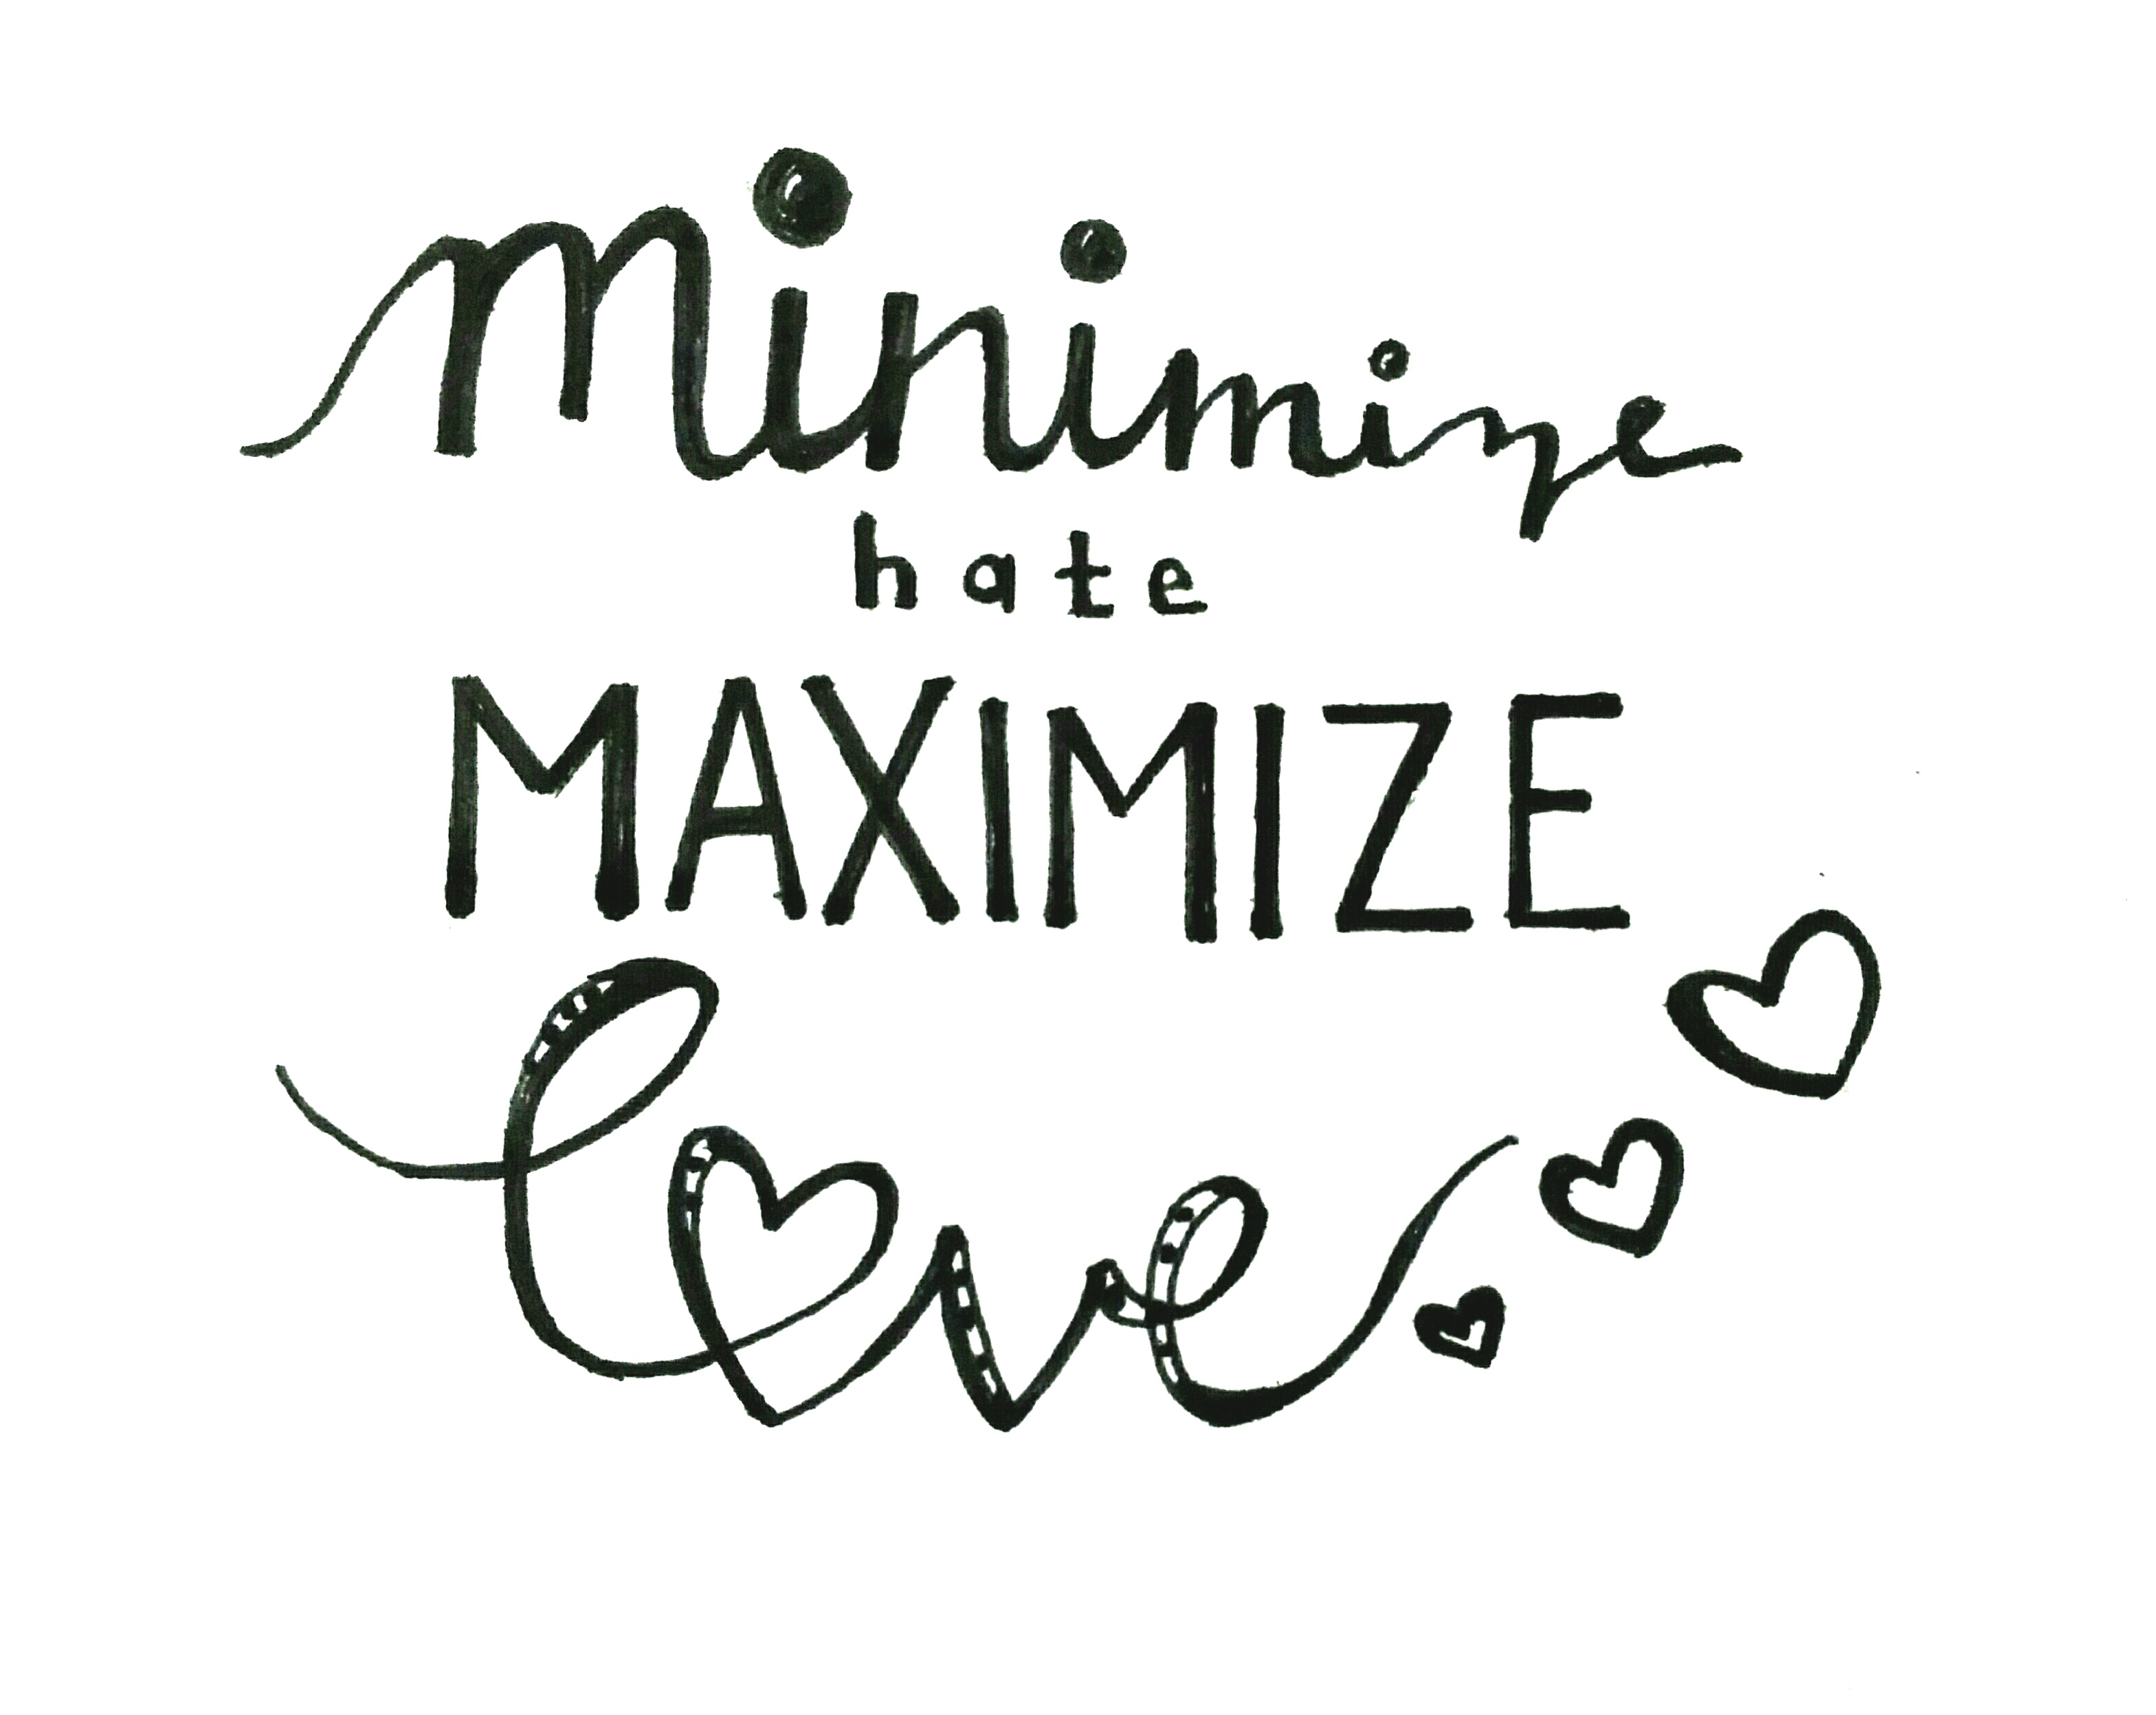 minimize
hate
MAXIMIZE
love